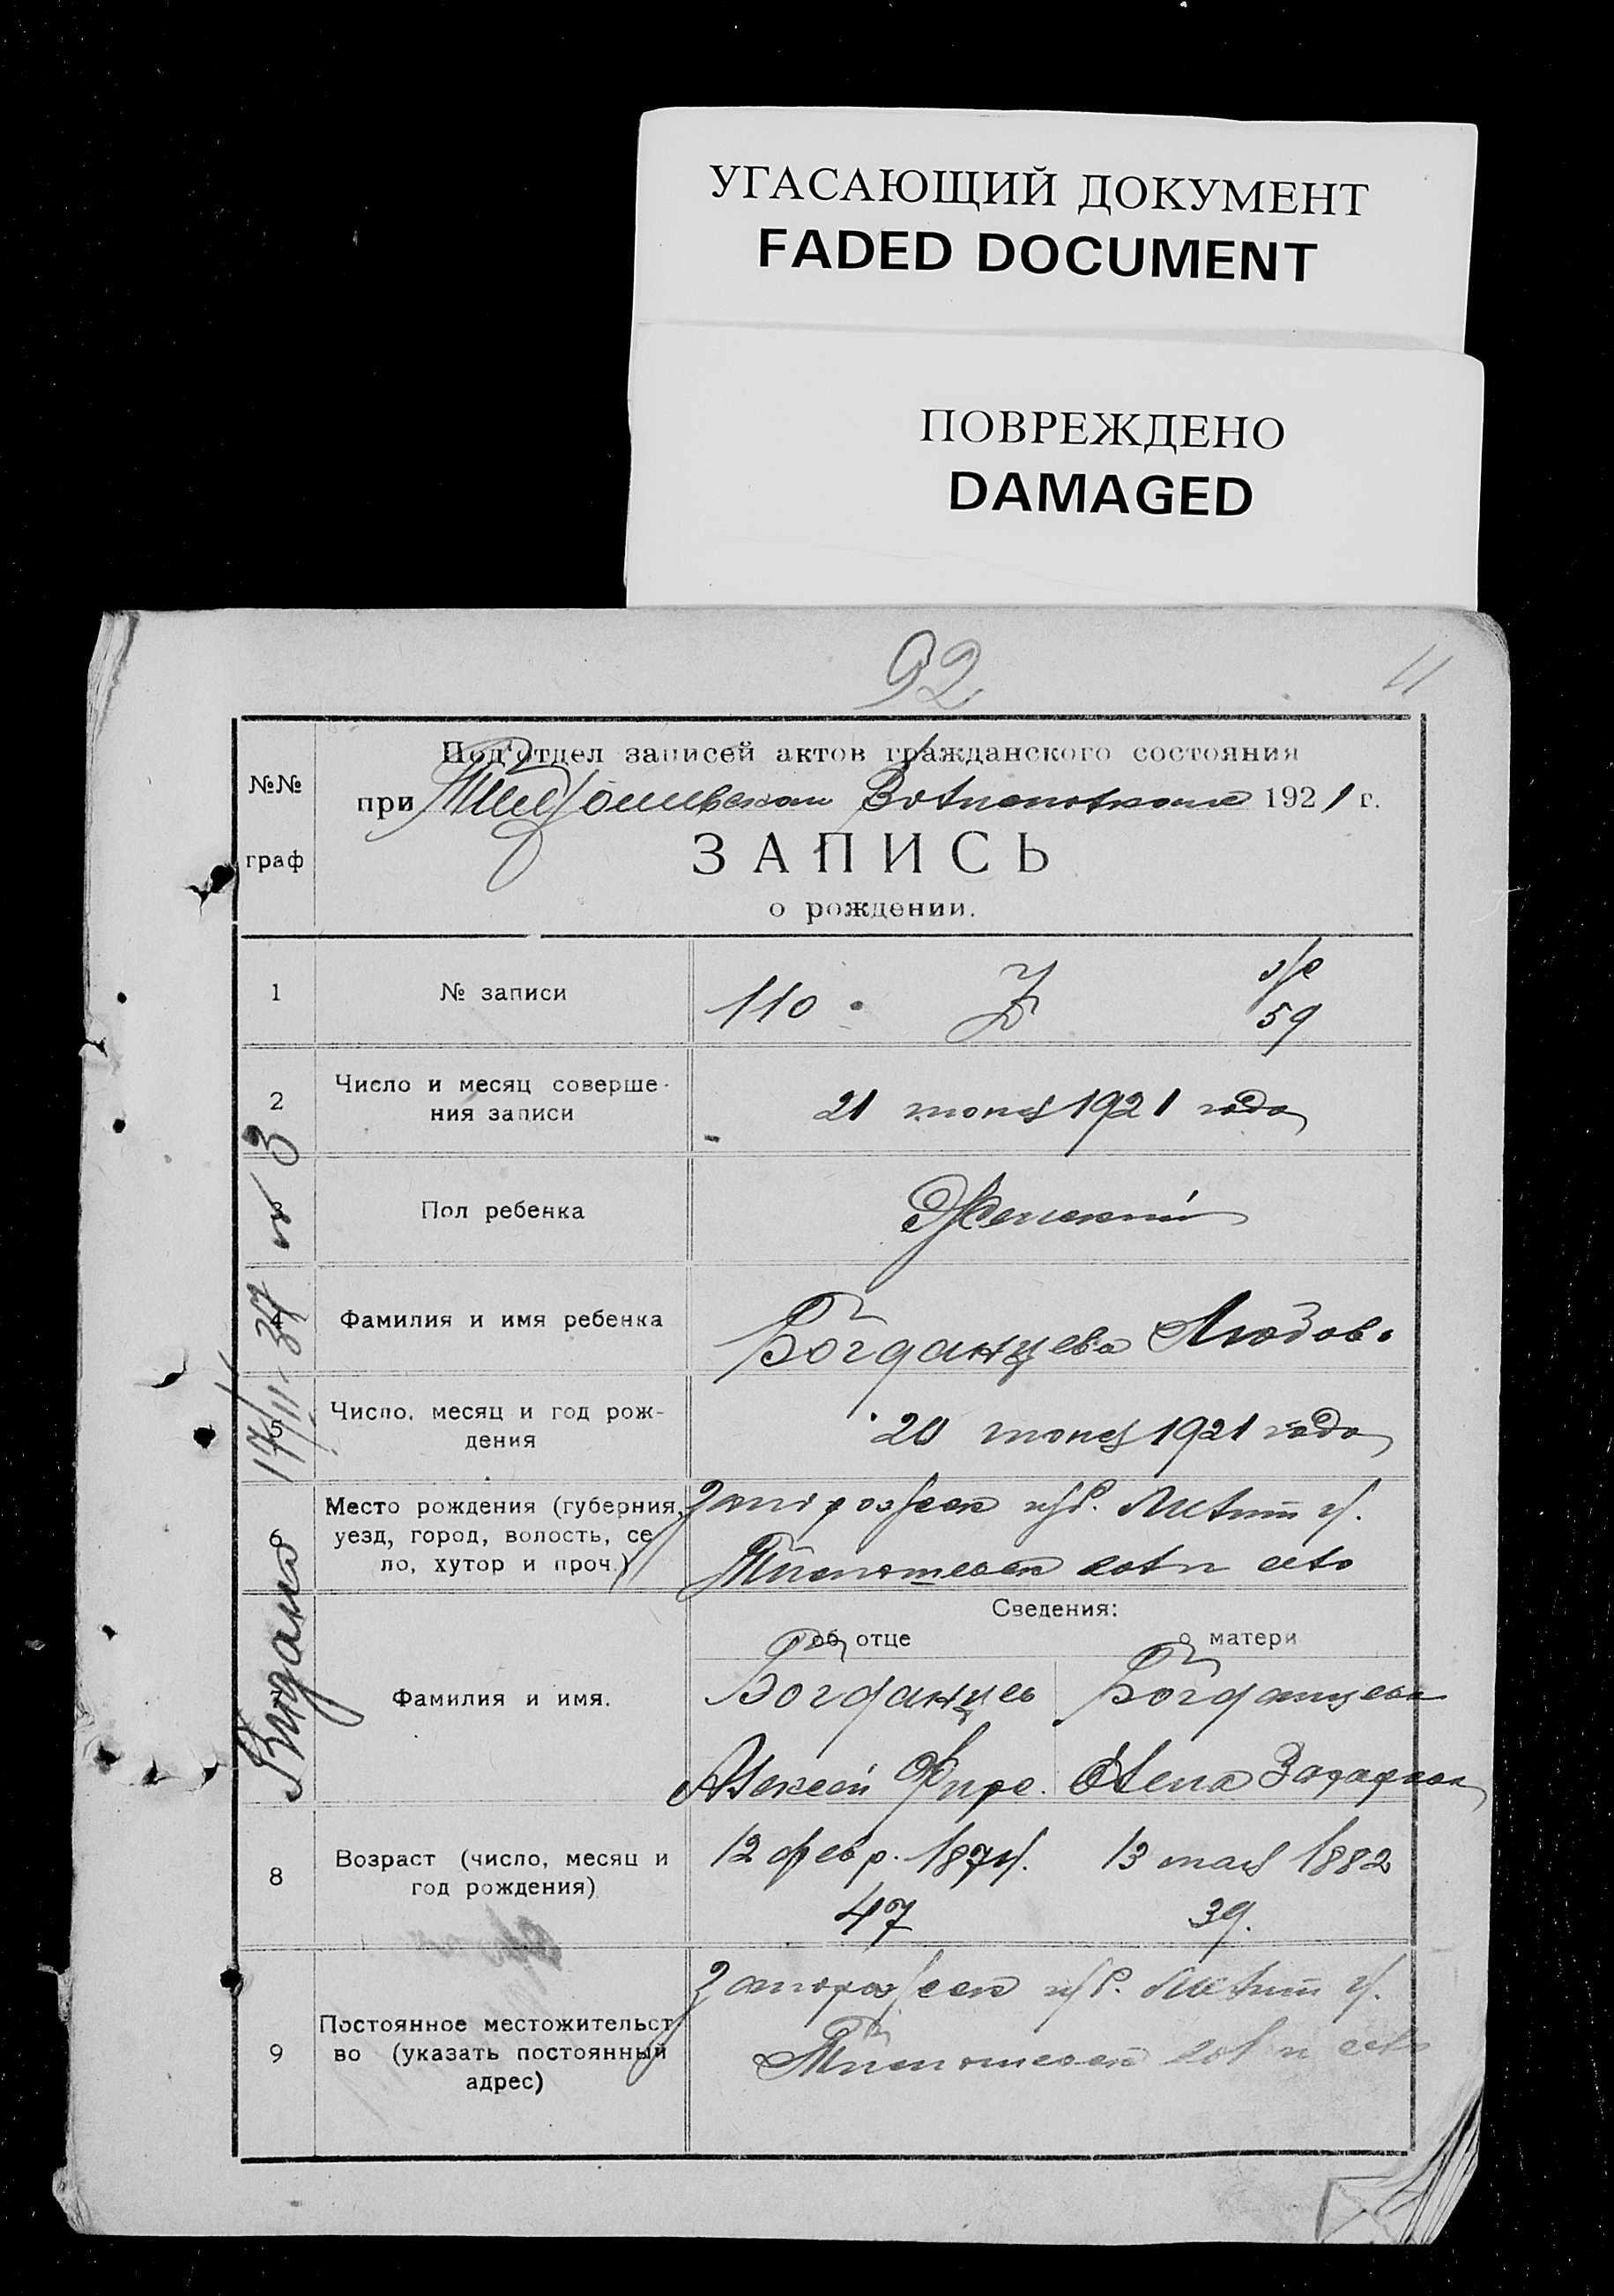 УГАСАЮЩИЙ ДОКУМЕНТ
FADED DOCUMENT
ПОВРЕЖДЕНО
DAMAGED
92
11
№№
граф
Под'отдел записей актов гражданского состояния
при 1921 г.
ЗАПИСЬ
о рождении.
1
№ записи
110
59
2
Число и месяц соверше-
ния записи
21 июня 1921 года
Пол ребенка
Женский
4
Фамилия и имя ребенка
Богданцева Любовь
5
Число, месяц и год рож-
дения
20 июня 1921 года
6
Место рождения (губерния,
уезд, город, волость, се
ло, хутор и проч.)
Запорожск губ. Мелит у.
вол и село
Сведения:
об отце
о матери
7
Фамилия и имя.
Богданцев
Богданцева
Алексей Фирс.
Елена
8
Возраст (число, месяц и
год рождения)
12 февр. 1874
13 мая 1882
47
39.
9
Постоянное местожительст
во (указать постоянный
адрес)
Запорожск губ. Мелит у.
вол и село
Выдано
17/11-37
№ 3